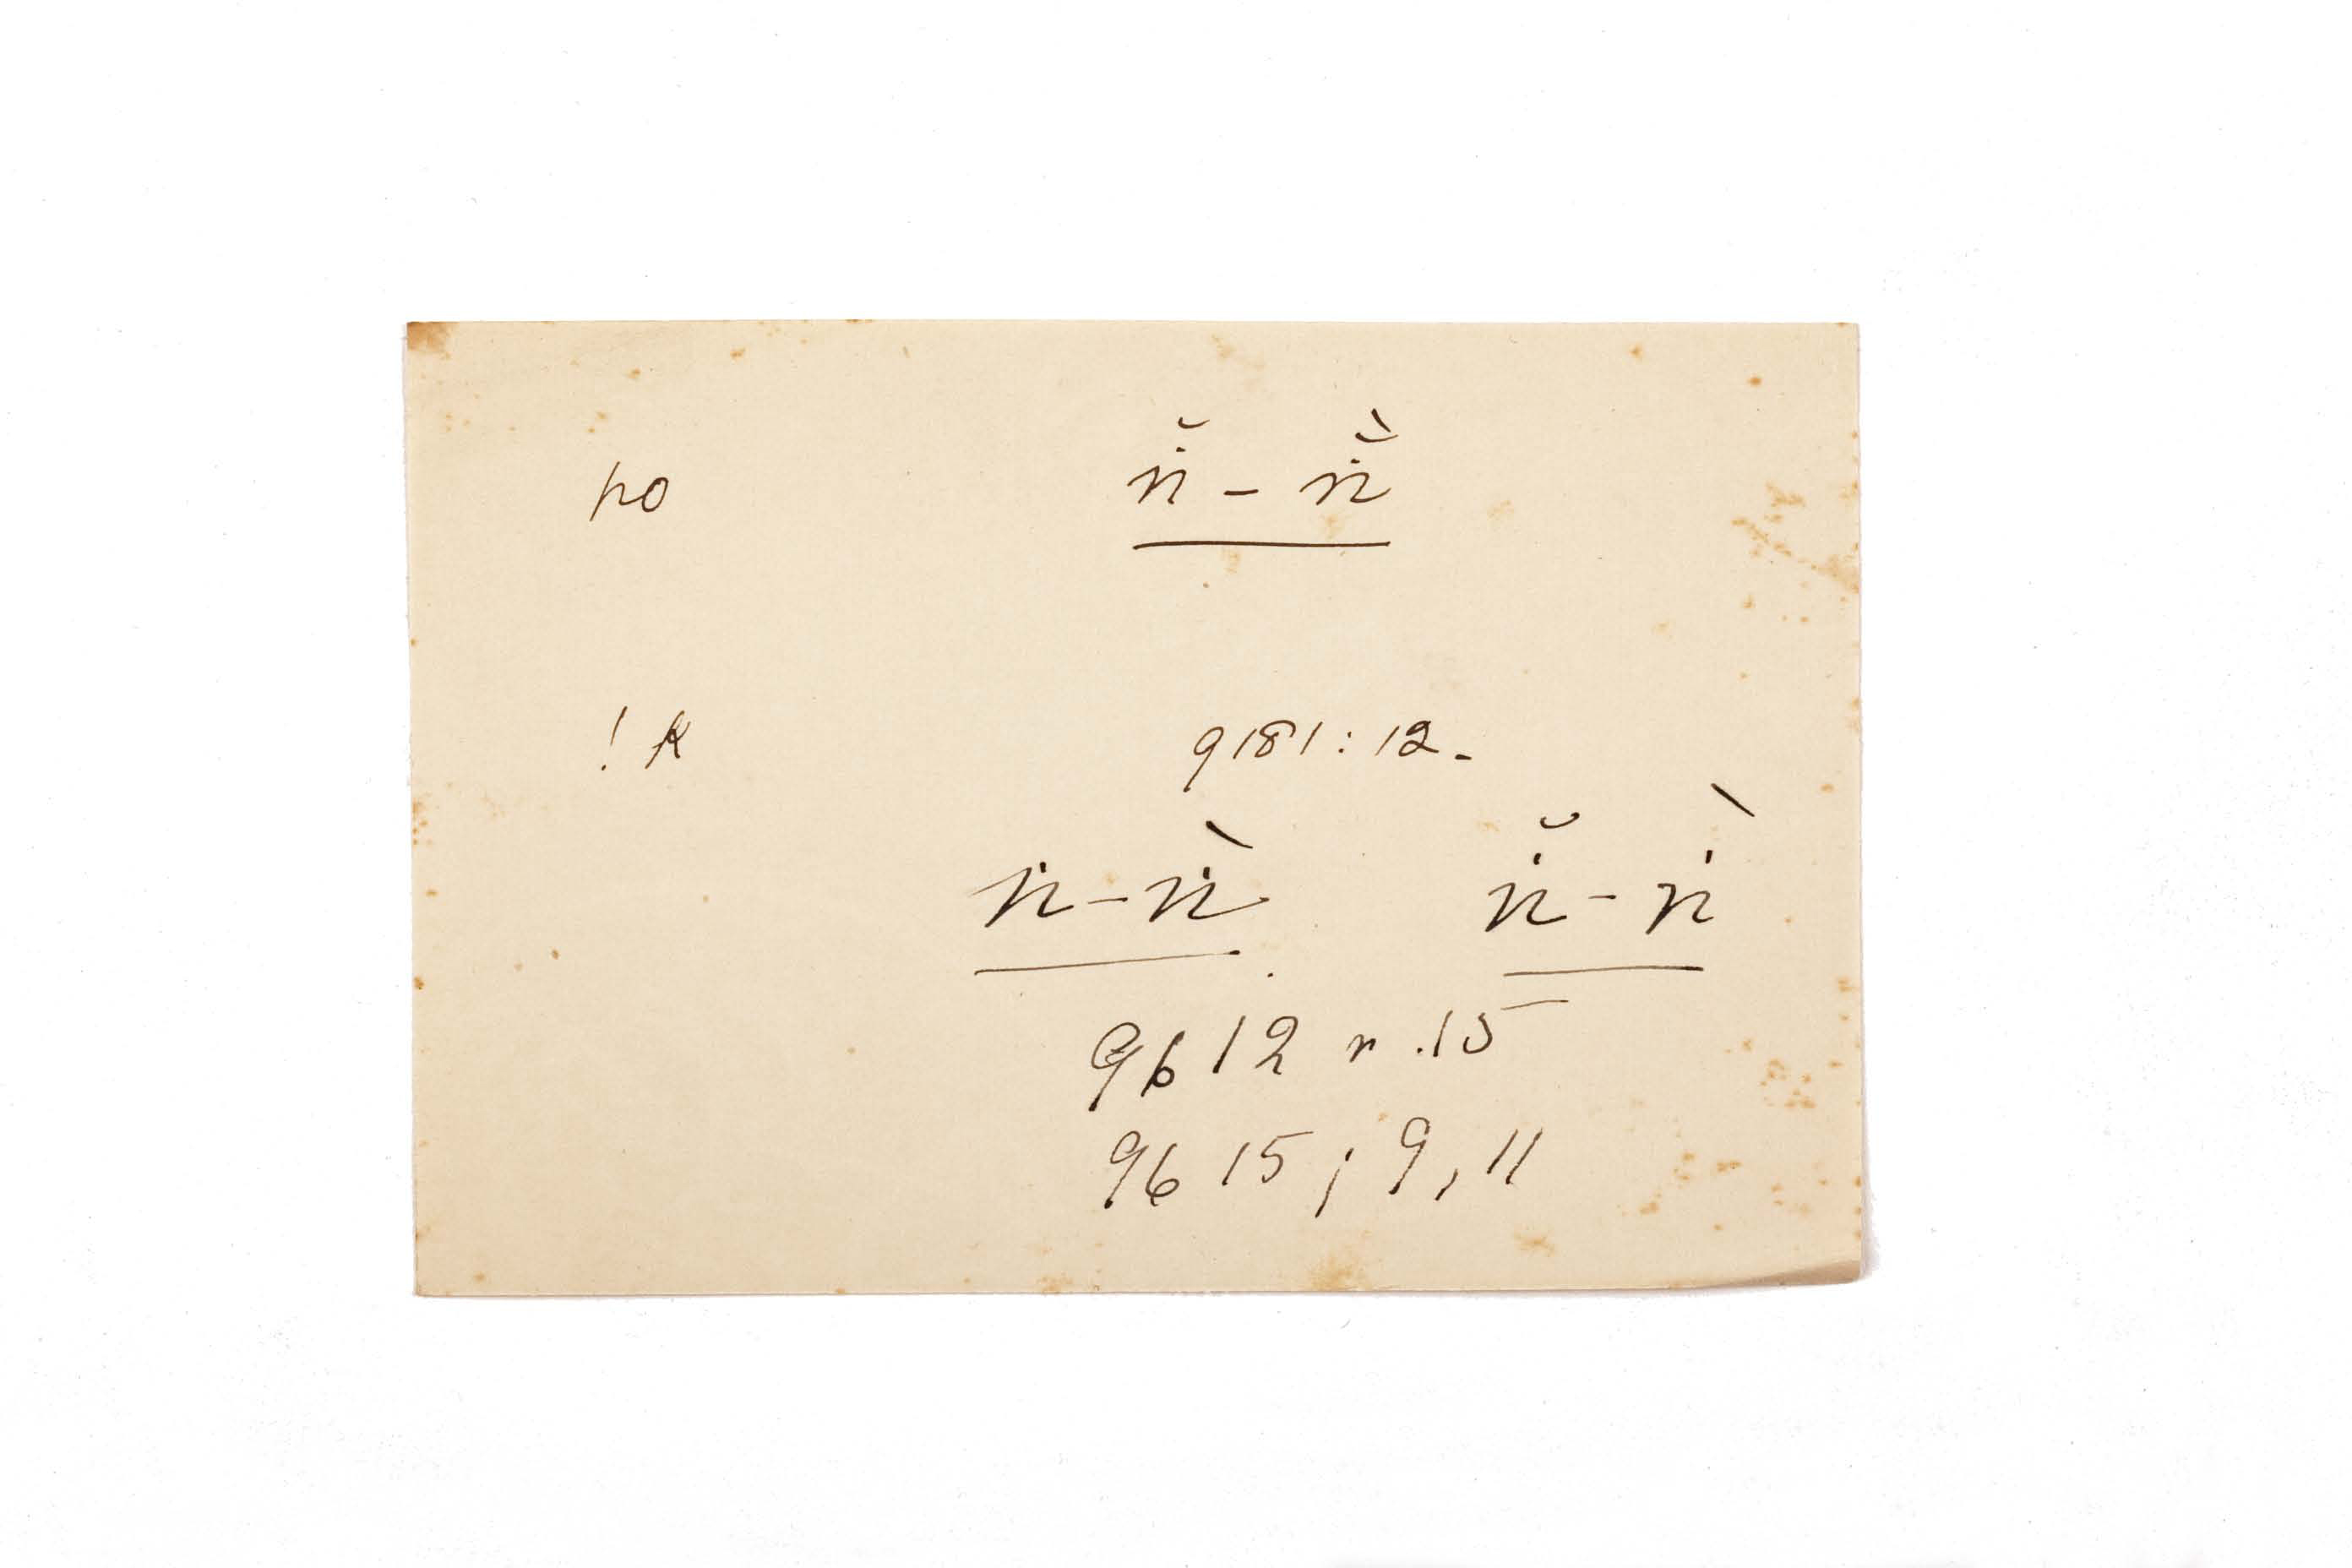 ho ṅ̆ - ṅ̆̀
! k 9181 : 12 -
ṅ - ṅ̀ ṅ̆ - ṅ̀
9612 r. 15
9615 ; 9, 11